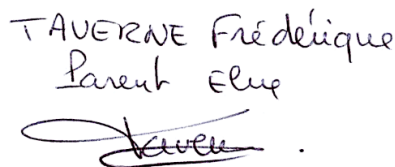 TAVERNE Frédérique
Parent Elue
Taverne